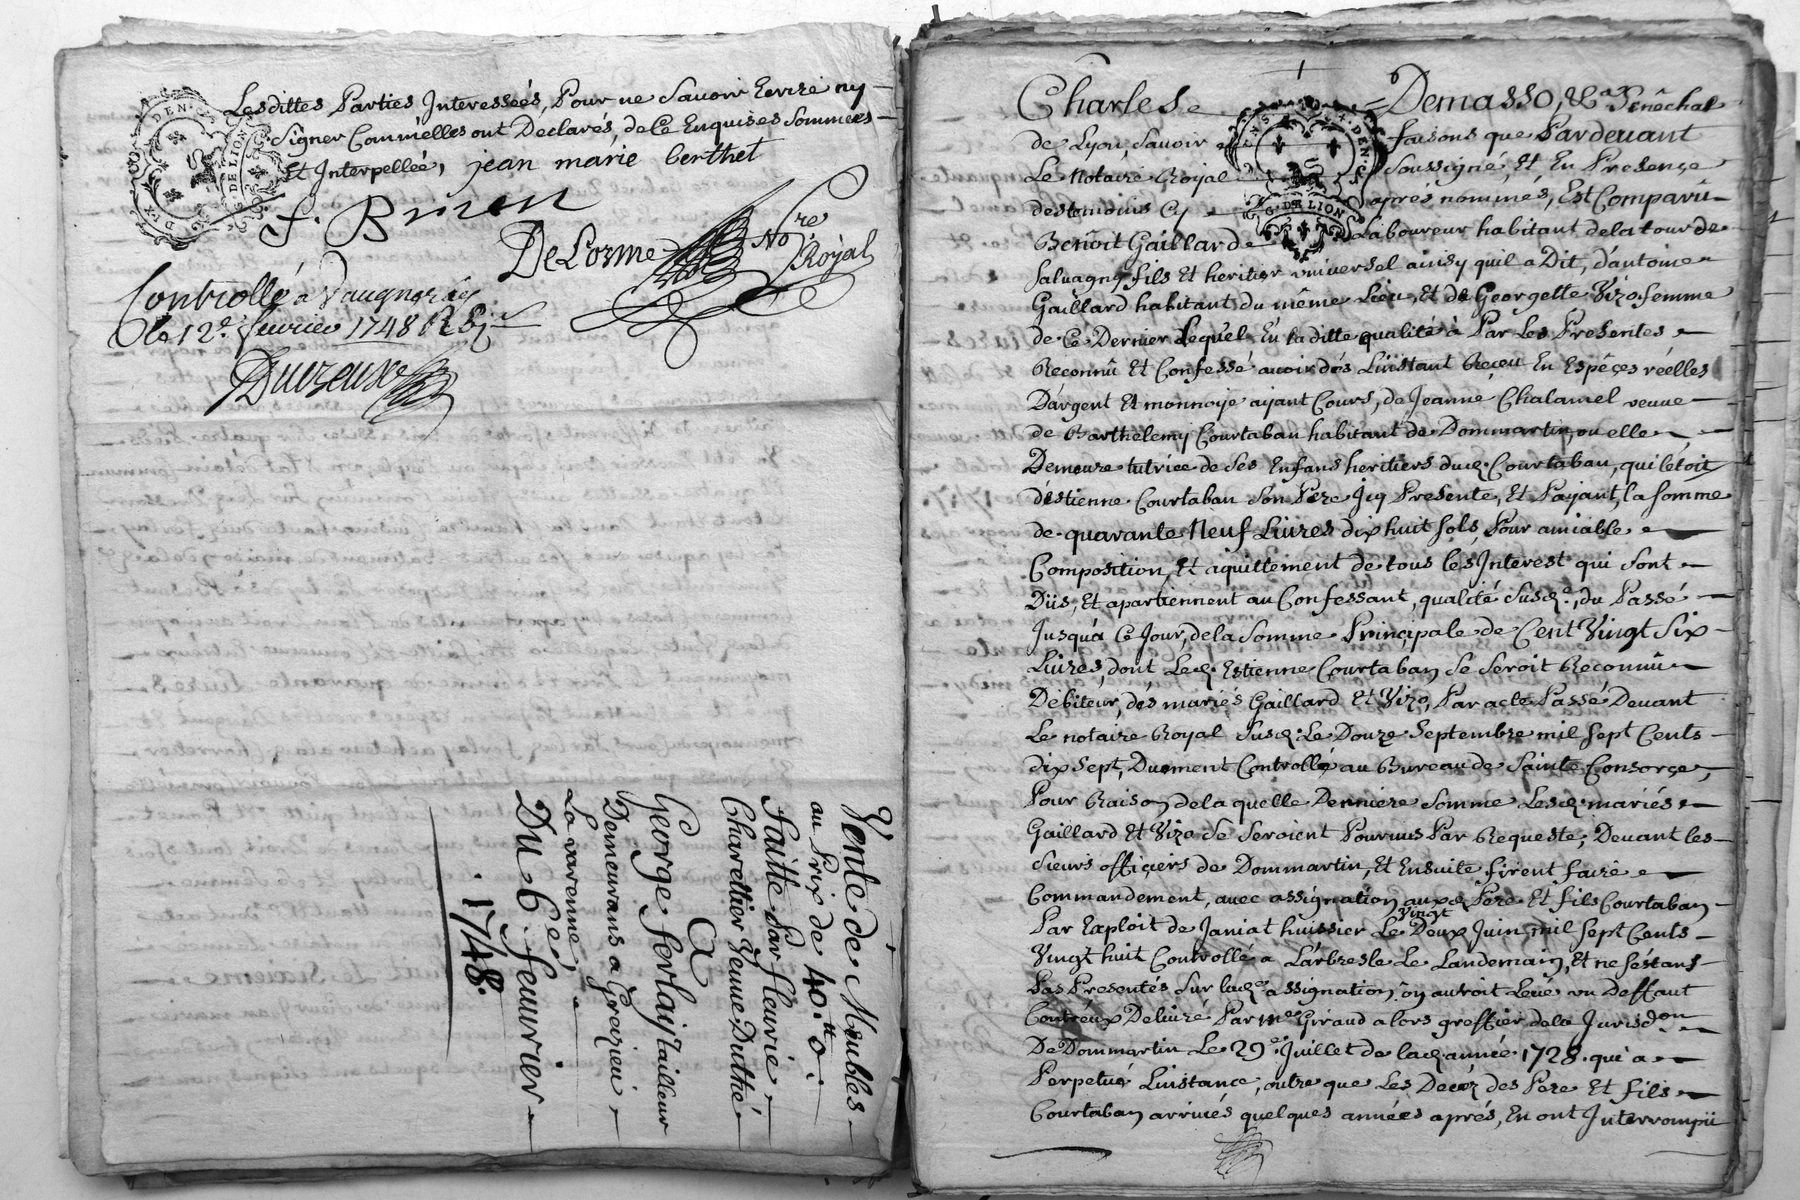 Lesdittes Parties Interessées, Pour ne Savoir Ecrire ny
Signer Comm'elles ont Déclarés, de Ce Enquises Sommées
Et Interpellée, jean marie berthet
f. Brisen
DeLorme No.re Royal
Controllé a Vaugneray
le 12.e fevrier 1748 R
Duvzeux
G. DE LION
Vente de Meubles
au Prix de 40.tt 0.s
faitte Par fleurie
Charettier Veuve Duthé
A
George ferlay Tailleur
Demeurans a Grezieu
La varenne
Du 6.e feuvrier
1748.
Charles Demasso, &a Senêchal
de Lyon, Savoir faisons que Pardevant
Le Notaire Royal Soussigné, Et En Presençe
des temoins Cy après nommés, Est Comparû
Benoît Gaillard Laboureur habitant de la tour de
Salvagny fils Et heritier universel ainsy quil a Dit, d'antoine
Gaillard habitant du même Lieu, Et de Georgette Vizo femme
de Ce Dernier Lequel En la ditte qualité à Par Les Presentes
Reconnû Et Confessé avoir dés L'instant Reçeu En Espêçes réelles
D'argent Et monnoye ayant Cours, de Jeanne Chalamel veuve
de Barthelemy Courtaban habitant de Dommartin, ou elle
Demeure tutrice de Ses Enfans heritiers dud. Courtaban, qui létoit
d'estienne Courtaban Son Pere Icy Presente, Et Payant, la Somme
de quarante Neuf Livres dix huit Sols, Pour amiable
Composition, Et aquittement de tous les Interest qui Sont
Dûs, Et apartiennent au Confessant, qualité Susd.e, du Passé
Jusqu'à Ce Jour, de la Somme Principale de Cent Vingt Six
Livres, dont Led. Estienne Courtaban Se Seroit Reconnû
Débiteur, dés mariés Gaillard Et Vizo, Par acte Passé Devant
Le notaire Royal Susd. Le Douze Septembre mil Sept Cents
dix Sept, Duement Controllé au Bureau de Sainte Consorçe,
Pour Raison de la quelle Derniere Somme Lesd. mariés
Gaillard Et Vizo Se Seroient Pourvus Par Requeste, Devant les
Sieurs offiçiers de Dommartin, Et Ensuite firent faire
Commandement, avec assignation auxd. Pere Et fils Courtaban
Par Exploit de Janiat huissier Le Vingt Deux Juin mil Sept Cents
Vingt huit Controllé a L'arbresle Le Landemain, Et ne S'éstans
Pas Presentés Sur lad.e assignation on auroit Levé un Deffaut
Contr'eux Delivré Par m.e Giraud alors greffier de la Jurisd.on
De Dommartin Le 29.e Juillet de lad. année 1728. qui a
Perpetué L'instance, outre que Les Decéz des Pere Et fils
Courtaban arrivés quelques années aprés, En ont Interrompü